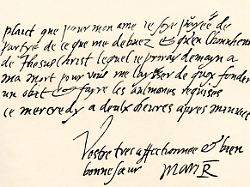 plaict que pour mon ame ie soye payée de
partye de ce que me debuez & qu'en l'honneur
de Jhesus Christ lequel ie priray demayn a
ma mort pour vous me laysser de quoy fonder
un obit & fayre les aulmones requises
ce mercredy a deulx heures apres minuit
Vostre tres affectionnee & bien
bonne sœur Mari R